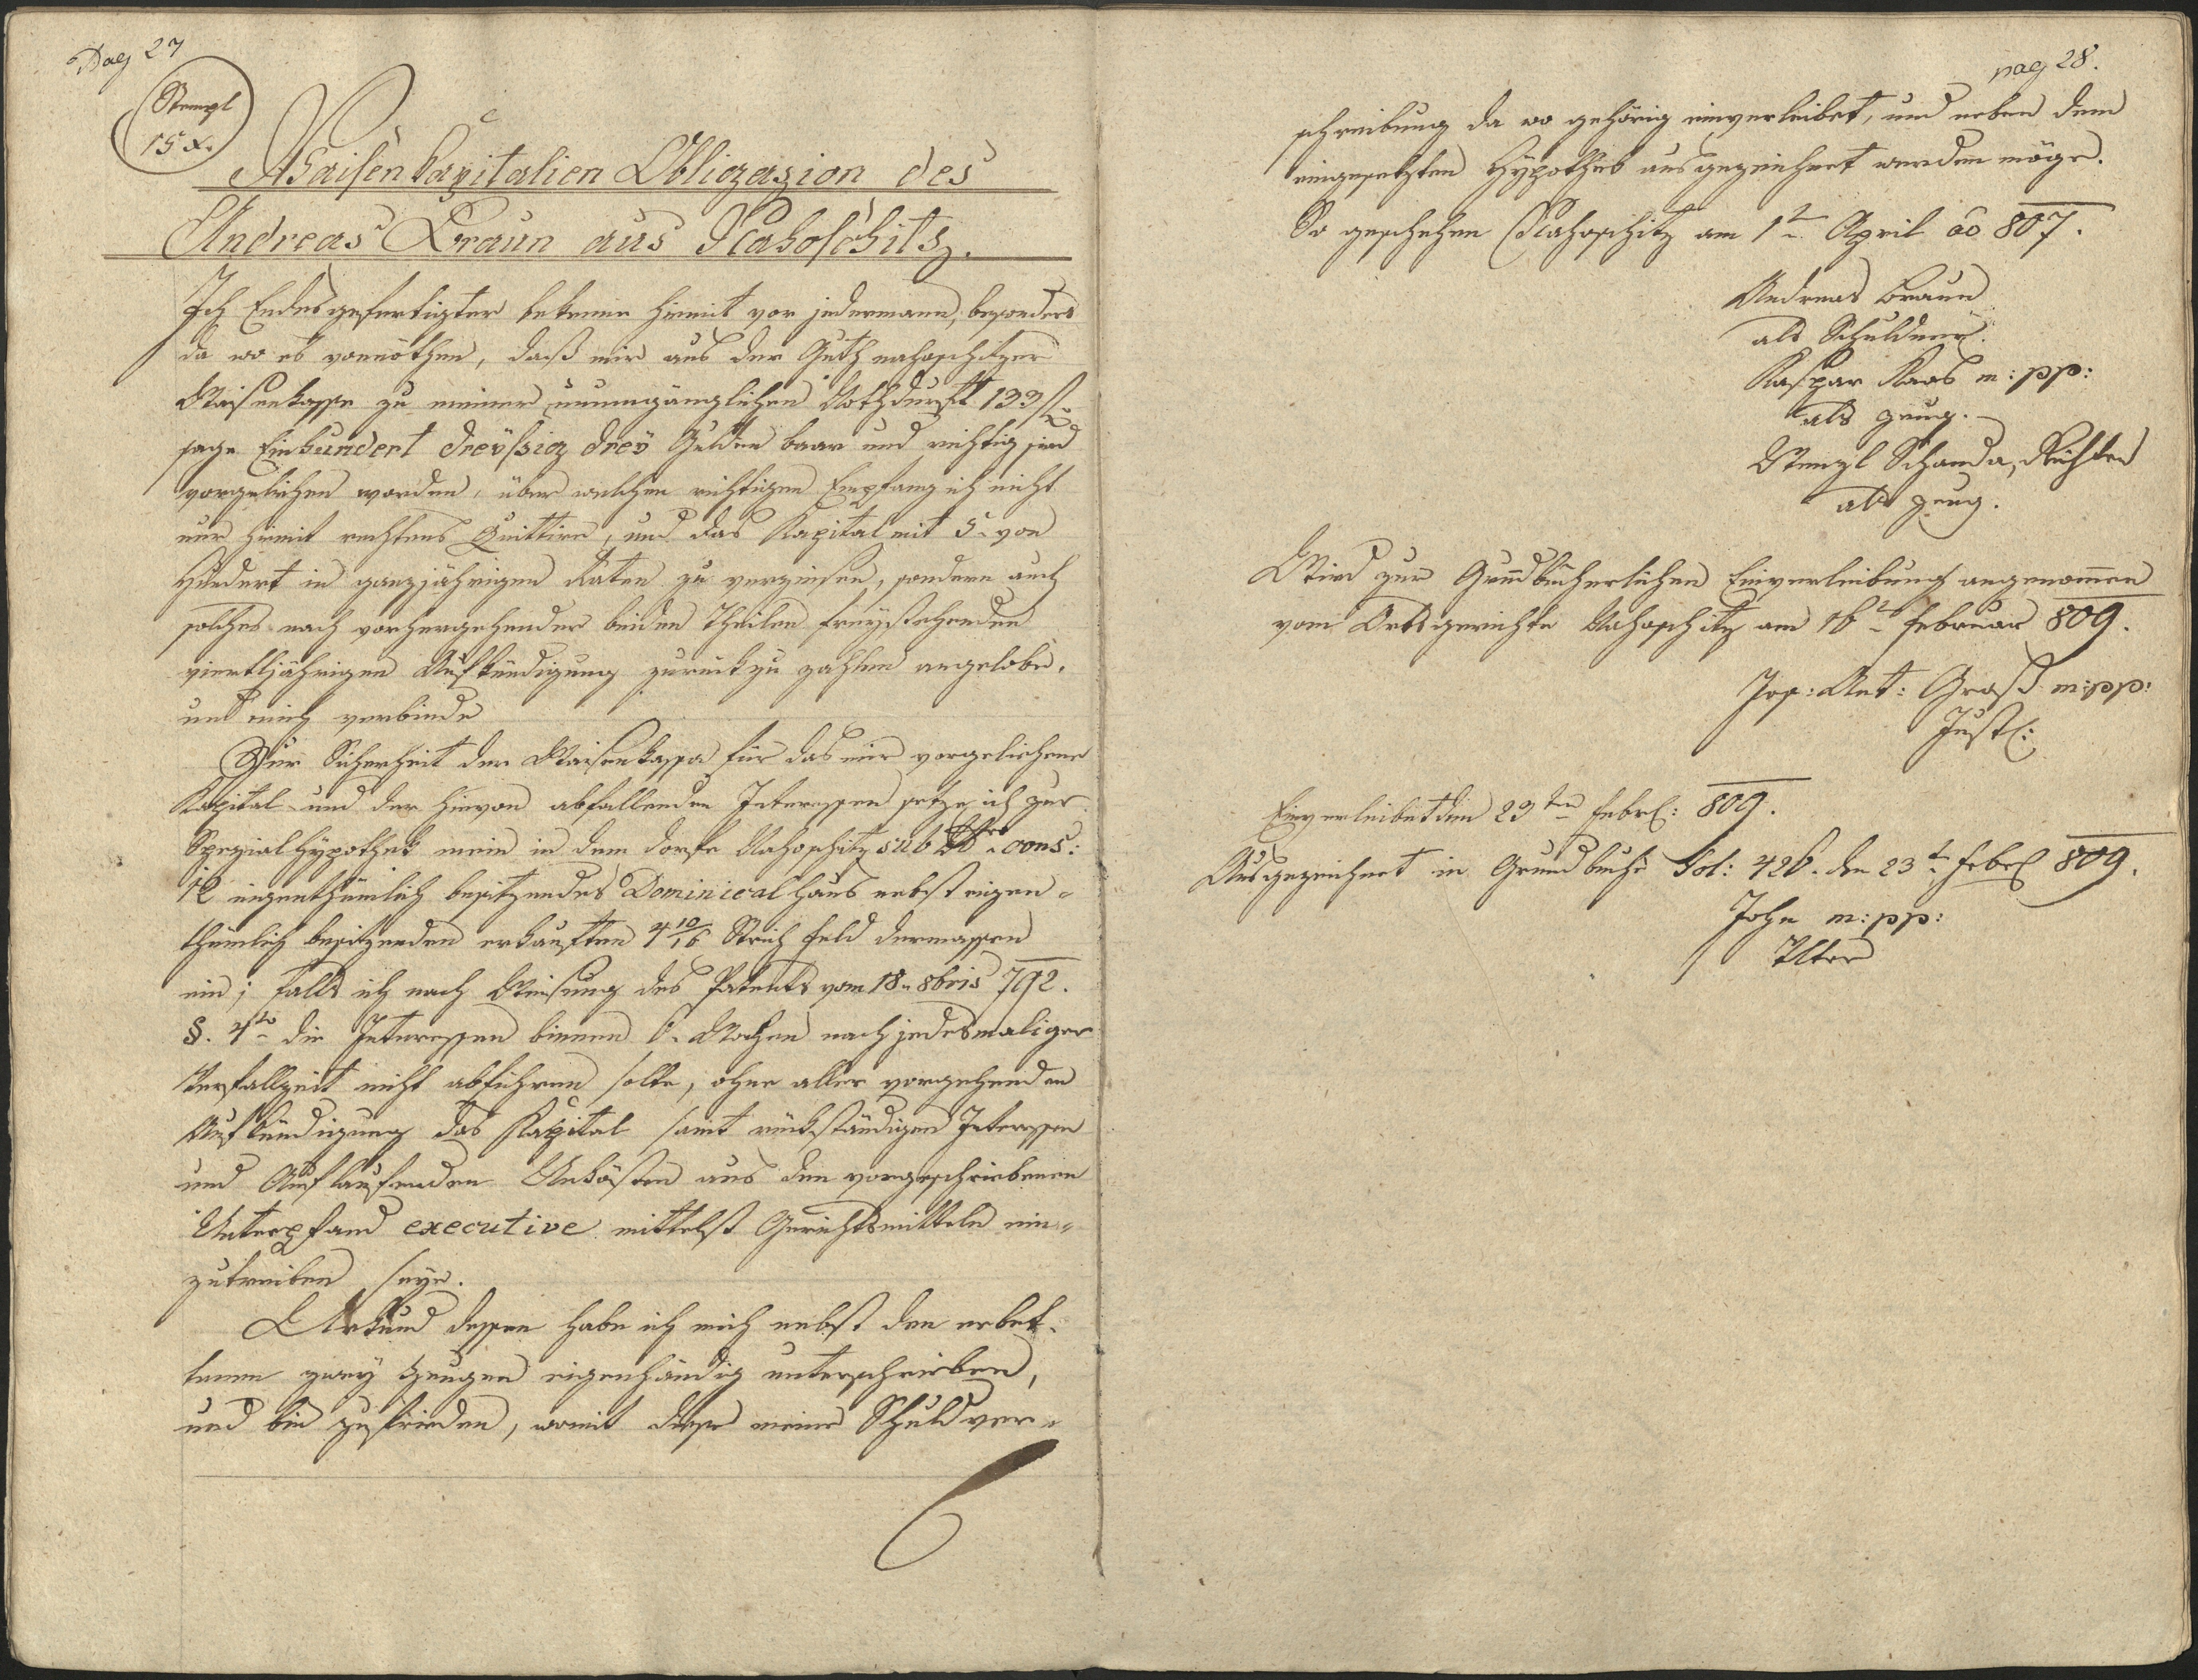 Pag 27
Stempl
15 x.
Waisen Capitalien Obligazion des
Andreas Braun aus Nahoschitz.
Ich Endesgefertigter bekenne hiemit vor jedermann, besonders
da wo es vonnöthen, daß mir aus der Guth nahoschitzer
Waisenkasse zu meiner unumgänglichen Nothdurft 133 f
sage Einhundert dreyßig drey Gulden baar und richtig sind
vorgeliehen worden, über welchen richtigen Empfang ich nicht
nur hiemit rechtens Quittire, und das Kapital mit 5 von
Hundert in ganzjährigen Raten zu verzinsen, sondern auch
solches nach vorhergehender beiden Theilen freystehenden
viertljährigen Aufkündigung zurückzu zahlen angelobe,
und mich verbinde
Zur Sicherheit der Waisenkassa für das mir vorgeliehene
Kapital und der hievon abfallenden Interessen setze ich zur
Spezialhypothek mein in dem Dorfe Nahoschitz sub Nro cons:
12 eigenthümlich besitzendes Dominical Haus nebst eigen-
thümlich besitzenden erkauften 4 10/16 Strich Feld dermassen
ein; falls ich nach Weisung des Patents vom 18. 8bris 792.
§. 4to die Interessen binnen 6. Wochen nach jedesmaliger
Verfallzeit nicht abführen solte, ohne aller vorgehenden
Aufkündigung das Kapital samt rückständigen Interessen
und Auflaufenden Unkösten aus den vorgeschriebenen
Unterpfand executive mittelst Gerichtsmitteln ein-
zutreiben seye.
Urkund dessen habe ich mich nebst den erbet-
tenen zwey Zeugen eigenhändig unterschrieben,
und bin zufrieden, womit diese meine Schuldver-
pag 28.
schreibung da wo gehörig einverleibet, und neben dem
eingesetzten Hypothek ausgezeichnet werden möge.
So geschehen Nahoschitz am 1t April ao 807.
Andreas Braun
als Schuldner.
Kaspar Kaas m: pp:
als zeug.
Wenzl Schanda, Richter
als zeug.
Wird zur Grundbücherlichen Einverleibung angenommen
vom Ortsgerichte Nahoschitz am 16t Februar 809.
Jos: Ant: Groß m:pp:
Just:
Einverleibet den 23ten Febr: 809.
Ausgezeichnet in Grundbuche Fol: 426. den 23t Febr 809.
John m:pp: